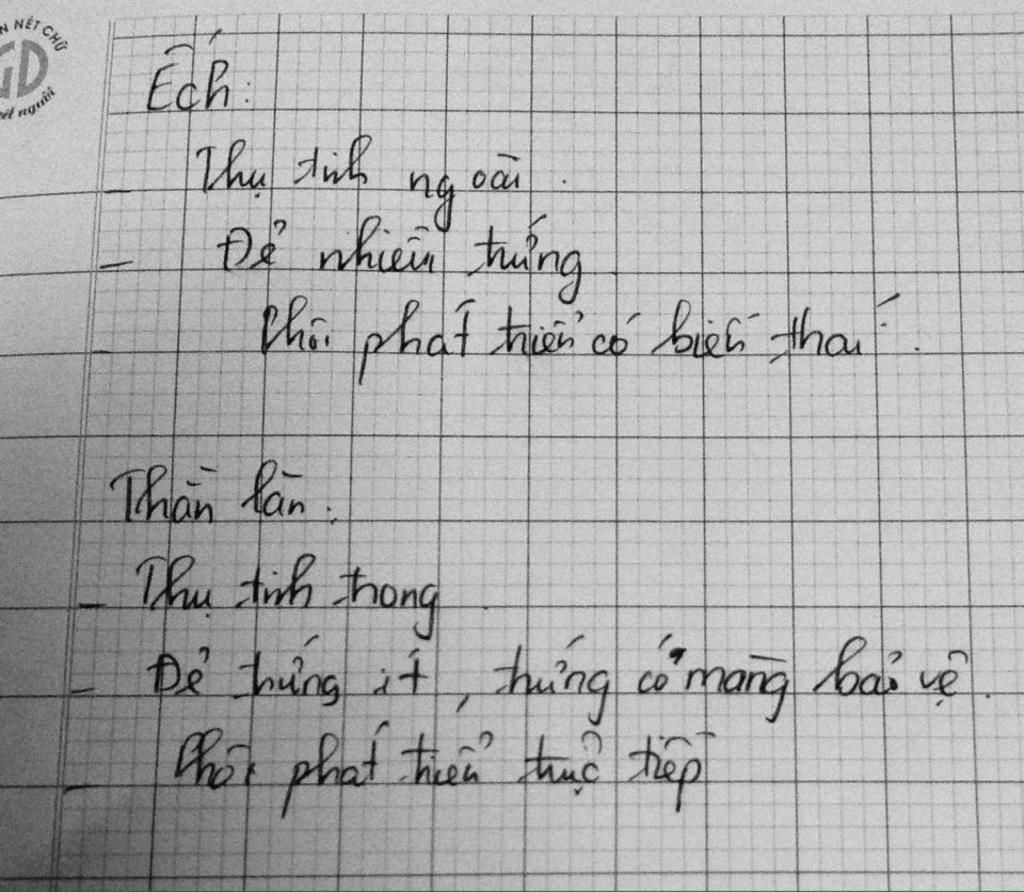 N NÉT CHỮ
GD
nết người
Ếch:
- Thụ tinh ngoài.
- Đẻ nhiều trứng
- Phôi phát triển có biến thái.
Thằn lằn:
- Thụ tinh trong
- Đẻ trứng ít, trứng có màng bảo vệ.
- Phôi phát triển trực tiếp